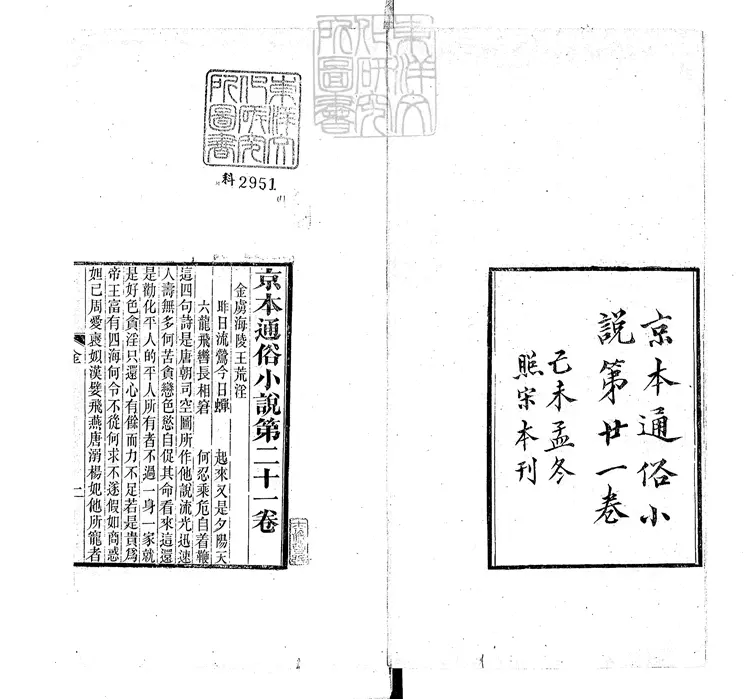 京本通俗小
說第廿一卷
己未孟冬
照宋本刊
東洋文
化研究
所圖書
東洋文
化研究
所圖書
科2951
京本通俗小說第二十一卷
金虜海陵王荒淫
昨日流鶯今日蟬 起來又是夕陽天
六龍飛轡長相窘 何忍乘危自着鞭
這四句詩是唐朝司空圖所作他說流光迅速
人壽無多何苦貪戀色慾自促其命看來這還
是勸化平人的平人所有者不過一身一家就
是好色貪淫只還心有餘而力不足若是貴爲
帝王富有四海何令不從何求不遂假如商惑
妲己周愛褒姒漢嬖飛燕唐溺楊妃他所寵者
金